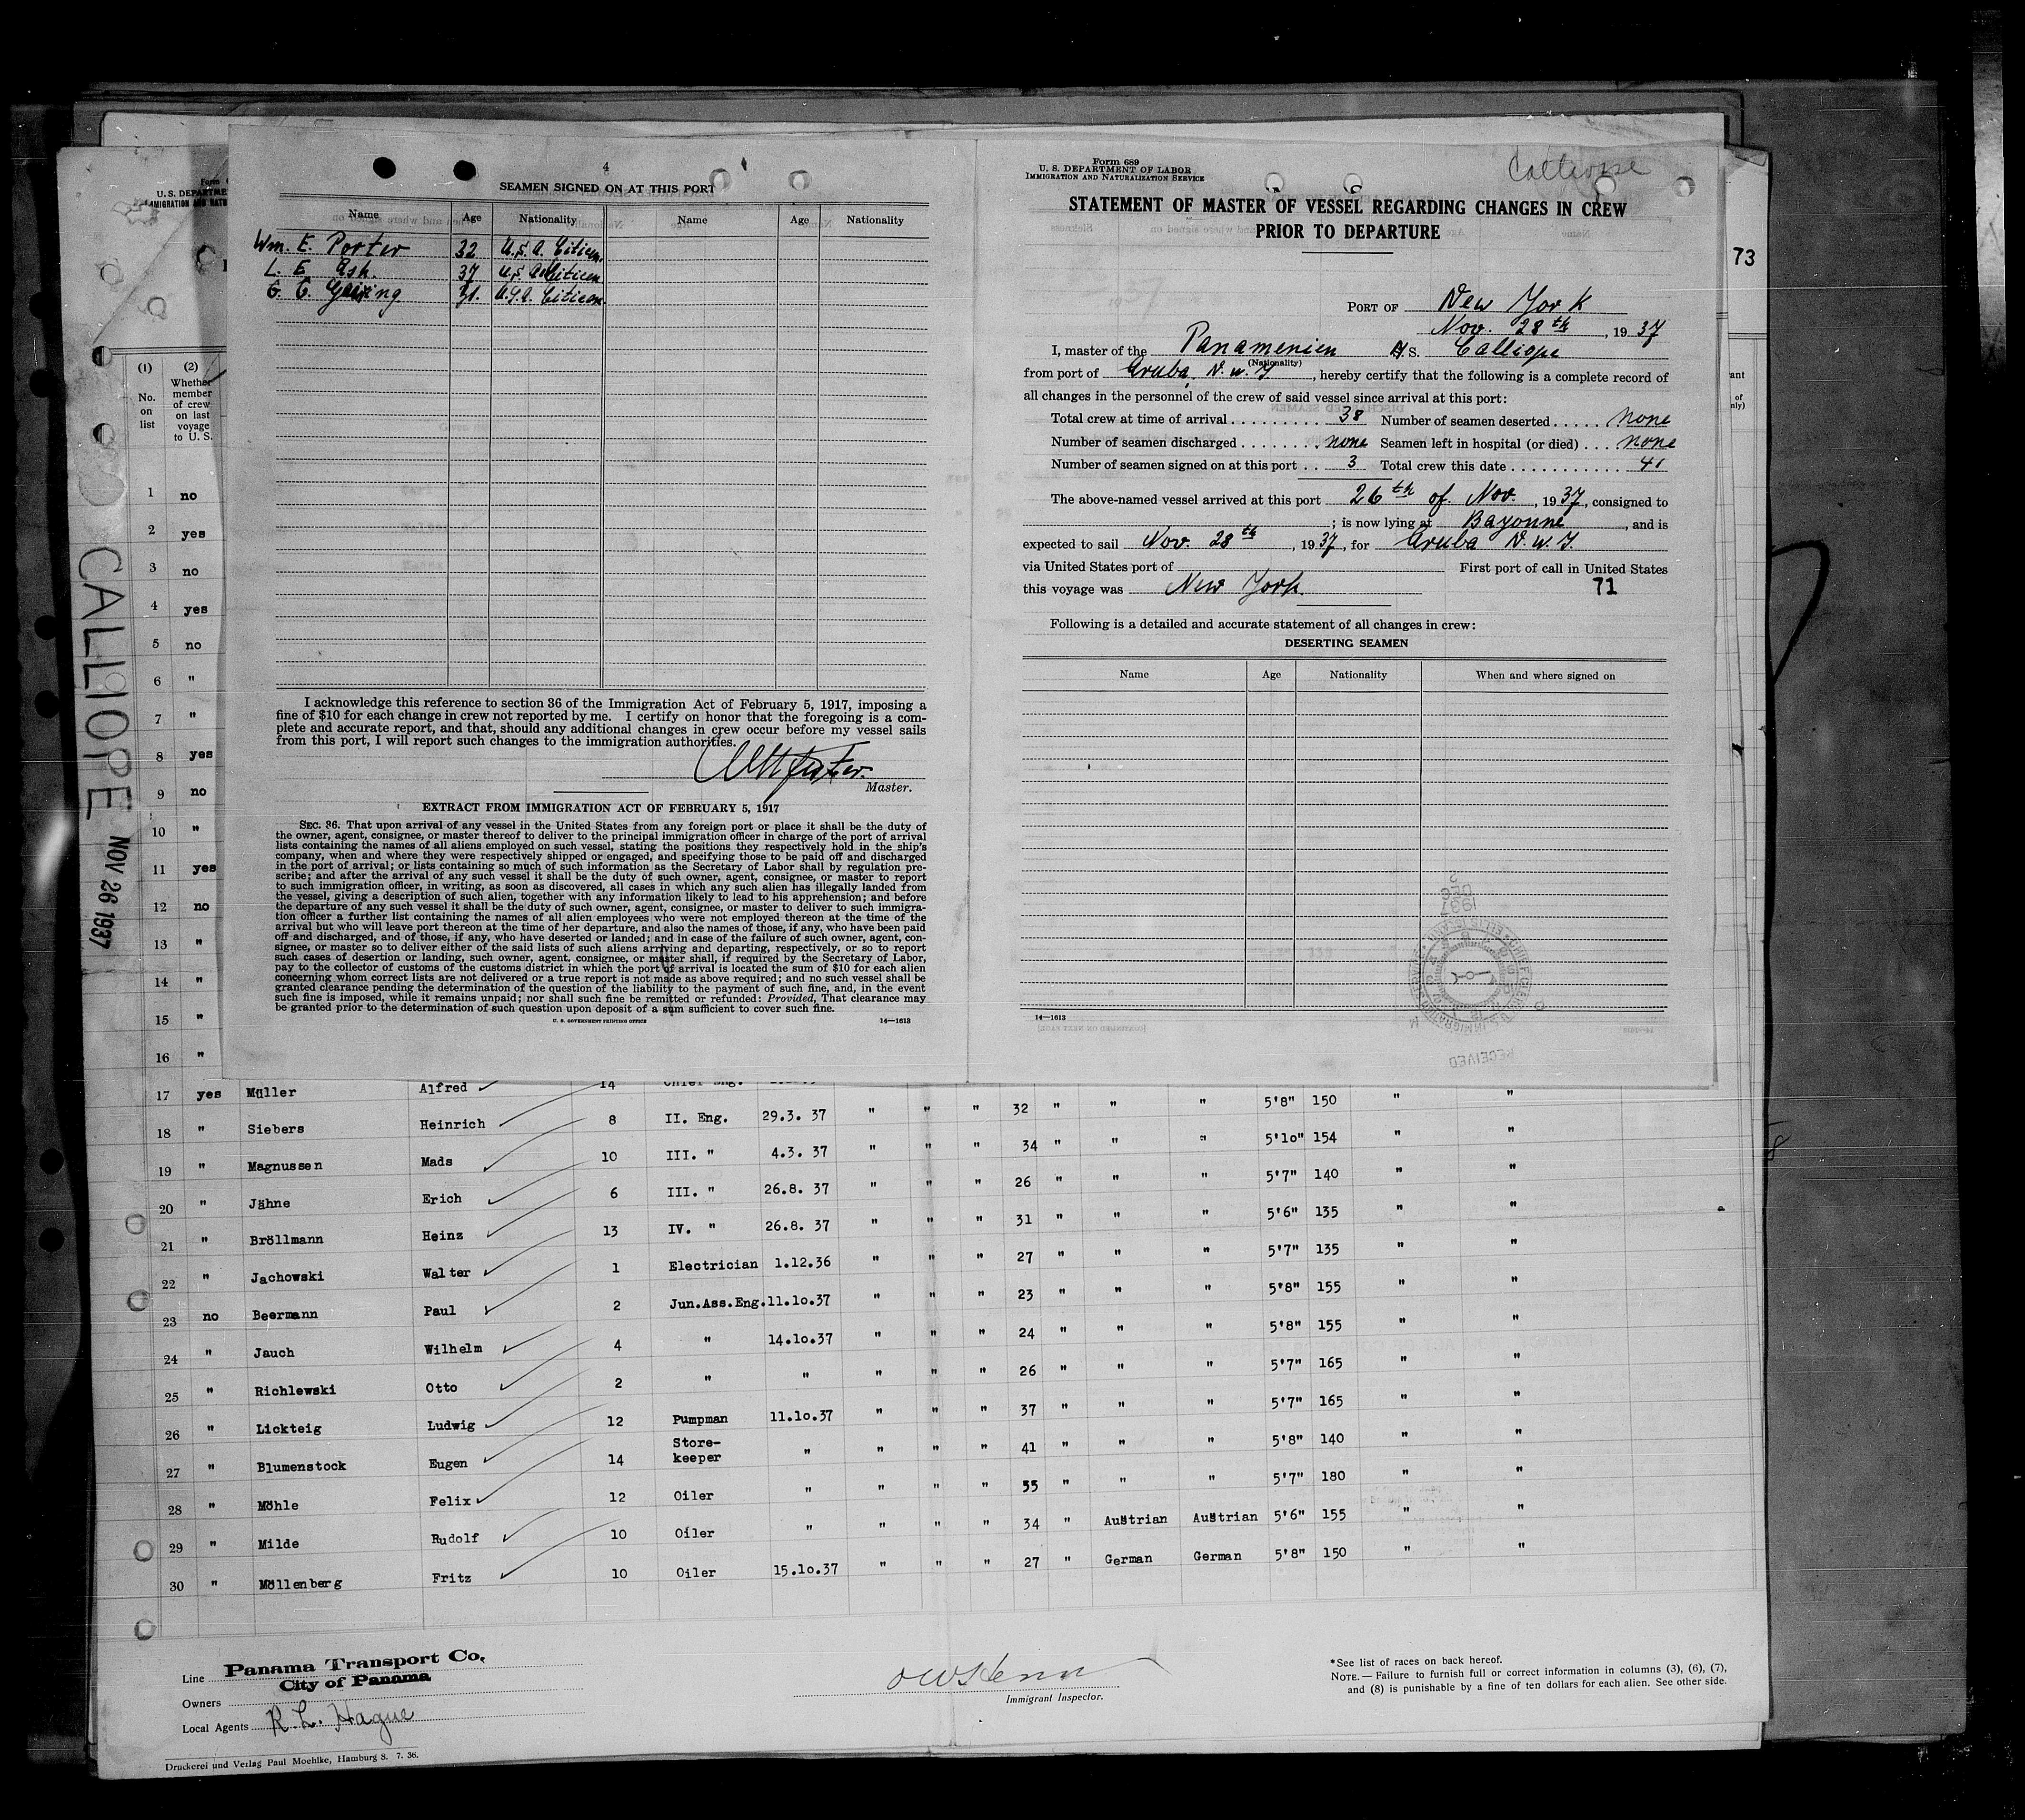 4
SEAMEN SIGNED ON AT THIS PORT
Name Age Nationality Name Age Nationality
Wm. E. Porter 32 U.S.A. Citizen.
L. E. Ash. 37 U.S.A. Citizen
31. U.S.A. Citizen
I acknowledge this reference to section 36 of the Immigration Act of February 5, 1917, imposing a
fine of $10 for each change in crew not reported by me. I certify on honor that the foregoing is a com-
plete and accurate report, and that, should any additional changes in crew occur before my vessel sails
from this port, I will report such changes to the immigration authorities.
Master.
EXTRACT FROM IMMIGRATION ACT OF FEBRUARY 5, 1917
SEC. 36. That upon arrival of any vessel in the United States from any foreign port or place it shall be the duty of
the owner, agent, consignee, or master thereof to deliver to the principal immigration officer in charge of the port of arrival
lists containing the names of all aliens employed on such vessel, stating the positions they respectively hold in the ship's
company, when and where they were respectively shipped or engaged, and specifying those to be paid off and discharged
in the port of arrival; or lists containing so much of such information as the Secretary of Labor shall by regulation pre-
scribe; and after the arrival of any such vessel it shall be the duty of such owner, agent, consignee, or master to report
to such immigration officer, in writing, as soon as discovered, all cases in which any such alien has illegally landed from
the vessel, giving a description of such alien, together with any information likely to lead to his apprehension; and before
the departure of any such vessel it shall be the duty of such owner, agent, consignee, or master to deliver to such immigra-
tion officer a further list containing the names of all alien employees who were not employed thereon at the time of the
arrival but who will leave port thereon at the time of her departure, and also the names of those, if any, who have been paid
off and discharged, and of those, if any, who have deserted or landed; and in case of the failure of such owner, agent, con-
signee, or master so to deliver either of the said lists of such aliens arriving and departing, respectively, or so to report
such cases of desertion or landing, such owner, agent, consignee, or master shall, if required by the Secretary of Labor,
pay to the collector of customs of the customs district in which the port of arrival is located the sum of $10 for each alien
concerning whom correct lists are not delivered or a true report is not made as above required; and no such vessel shall be
granted clearance pending the determination of the question of the liability to the payment of such fine, and, in the event
such fine is imposed, while it remains unpaid; nor shall such fine be remitted or refunded: Provided, That clearance may
be granted prior to the determination of such question upon deposit of a sum sufficient to cover such fine.
U. S. GOVERNMENT PRINTING OFFICE 14—1613
Form 689
U. S. DEPARTMENT OF LABOR
IMMIGRATION AND NATURALIZATION SERVICE
Calliope
STATEMENT OF MASTER OF VESSEL REGARDING CHANGES IN CREW
PRIOR TO DEPARTURE
PORT OF New York
Nov. 28th, 1937
I, master of the Panamenien S. Calliope
(Nationality)
from port of Aruba, N.W.I, hereby certify that the following is a complete record of
all changes in the personnel of the crew of said vessel since arrival at this port:
Total crew at time of arrival 38 Number of seamen deserted none
Number of seamen discharged none Seamen left in hospital (or died) none
Number of seamen signed on at this port 3 Total crew this date 41
The above-named vessel arrived at this port 26th of Nov., 1937, consigned to
; is now lying at Bayonne, and is
expected to sail Nov. 28th, 1937, for Aruba N.W.I.
via United States port of First port of call in United States
this voyage was New York. 71
Following is a detailed and accurate statement of all changes in crew:
DESERTING SEAMEN
Name Age Nationality When and where signed on
14—1613
RECEIVED
73
U. S. DEPARTME
CALLIOPE NOV 26 1937
(1) (2)
No. on list
Whether member of crew on last voyage to U. S.
1 no
2 yes
3 no
4 yes
5 no
6 "
7 "
8 yes
9 no
10 "
11 yes
12 no
13 "
14 "
15 "
16 "
17 yes Müller Alfred 14 Chief Eng.
18 " Siebers Heinrich 8 II. Eng. 29.3. 37 " " " 32 " " " 5'8" 150 " "
19 " Magnussen Mads 10 III. " 4.3. 37 " " " 34 " " " 5'10" 154 " "
20 " Jähne Erich 6 III. " 26.8. 37 " " " 26 " " " 5'7" 140 " "
21 " Bröllmann Heinz 13 IV. " 26.8. 37 " " " 31 " " " 5'6" 135 " "
22 " Jachowski Walter 1 Electrician 1.12.36 " " " 27 " " " 5'7" 135 " "
23 no Beermann Paul 2 Jun.Ass.Eng. 11.10.37 " " " 23 " " " 5'8" 155 " "
24 " Jauch Wilhelm 4 " 14.10.37 " " " 24 " " " 5'8" 155 " "
25 " Richlewski Otto 2 " " " " " 26 " " " 5'7" 165 " "
26 " Lickteig Ludwig 12 Pumpman 11.10.37 " " " 37 " " " 5'7" 165 " "
27 " Blumenstock Eugen 14 Store-keeper " " " " 41 " " " 5'8" 140 " "
28 " Möhle Felix 12 Oiler " " " " 55 " " " 5'7" 180 " "
29 " Milde Rudolf 10 Oiler " " " " 34 " Austrian Austrian 5'6" 155 " "
30 " Möllenberg Fritz 10 Oiler 15.10.37 " " " 27 " German German 5'8" 150 " "
Line Panama Transport Co.
City of Panama
Owners
Local Agents R. L. Hague
Immigrant Inspector.
*See list of races on back hereof.
NOTE.—Failure to furnish full or correct information in columns (3), (6), (7),
and (8) is punishable by a fine of ten dollars for each alien. See other side.
Druckerei und Verlag Paul Moehlke, Hamburg 8. 7. 36.